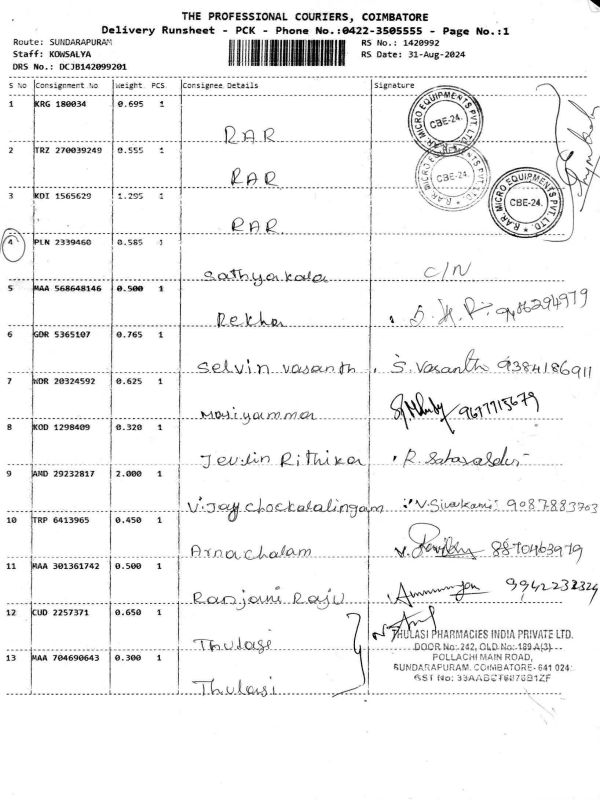 THE PROFESSIONAL COURIERS, COIMBATORE
Delivery Runsheet - PCK - Phone No.:0422-3505555 - Page No.:1
Route: SUNDARAPURAM
RS No.: 1420992
Staff: KOWSALYA
RS Date: 31-Aug-2024
DRS No.: DCJB142099201
S No Consignment No Weight PCS Consignee Details Signature
1 KRG 180034 0.695 1
RAR
R.AR MICRO EQUIPMENTS PVT. LTD. CBE-24.
2 TRZ 270039249 0.555 1
RAR
CBE-24.
3 KDI 1565629 1.295 1
RAR
R.AR MICRO EQUIPMENTS PVT. LTD. CBE-24.
4 PLN 2339460 0.585 1
Sathyakala C/N
5 MAA 568648146 0.500 1
Rekha
6 GDR 5365107 0.765 1
Selvin vasanth S. Vasanth 9384186911
7 WDR 20324592 0.625 1
Mariyammal 9677715679
8 KOD 1298409 0.320 1
Jeulin Rithika
9 AMD 29232817 2.000 1
Vijay chockalalingam V. Sivakami 9087883703
10 TRP 6413965 0.450 1
Arnachalam 8870463979
11 MAA 301361742 0.500 1
Ranjani Raju
12 CUD 2257371 0.650 1
Thulasi
13 MAA 704690643 0.300 1
Thulasi
THULASI PHARMACIES INDIA PRIVATE LTD.
DOOR No: 242, OLD No: 189 A(3)
POLLACHI MAIN ROAD,
SUNDARAPURAM, COIMBATORE- 641 024
GST No: